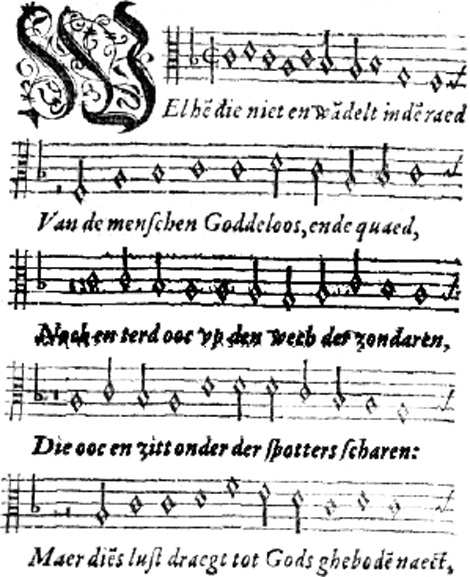 WEl hē die niet en wādelt indē raed
Van de menſchen Goddeloos, ende quaed,
Noch en terd ooc vp den wech der zondaren,
Die ooc en zitt onder der ſpotters ſcharen:
Maer diēs luſt draegt tot Gods ghebodē naect,